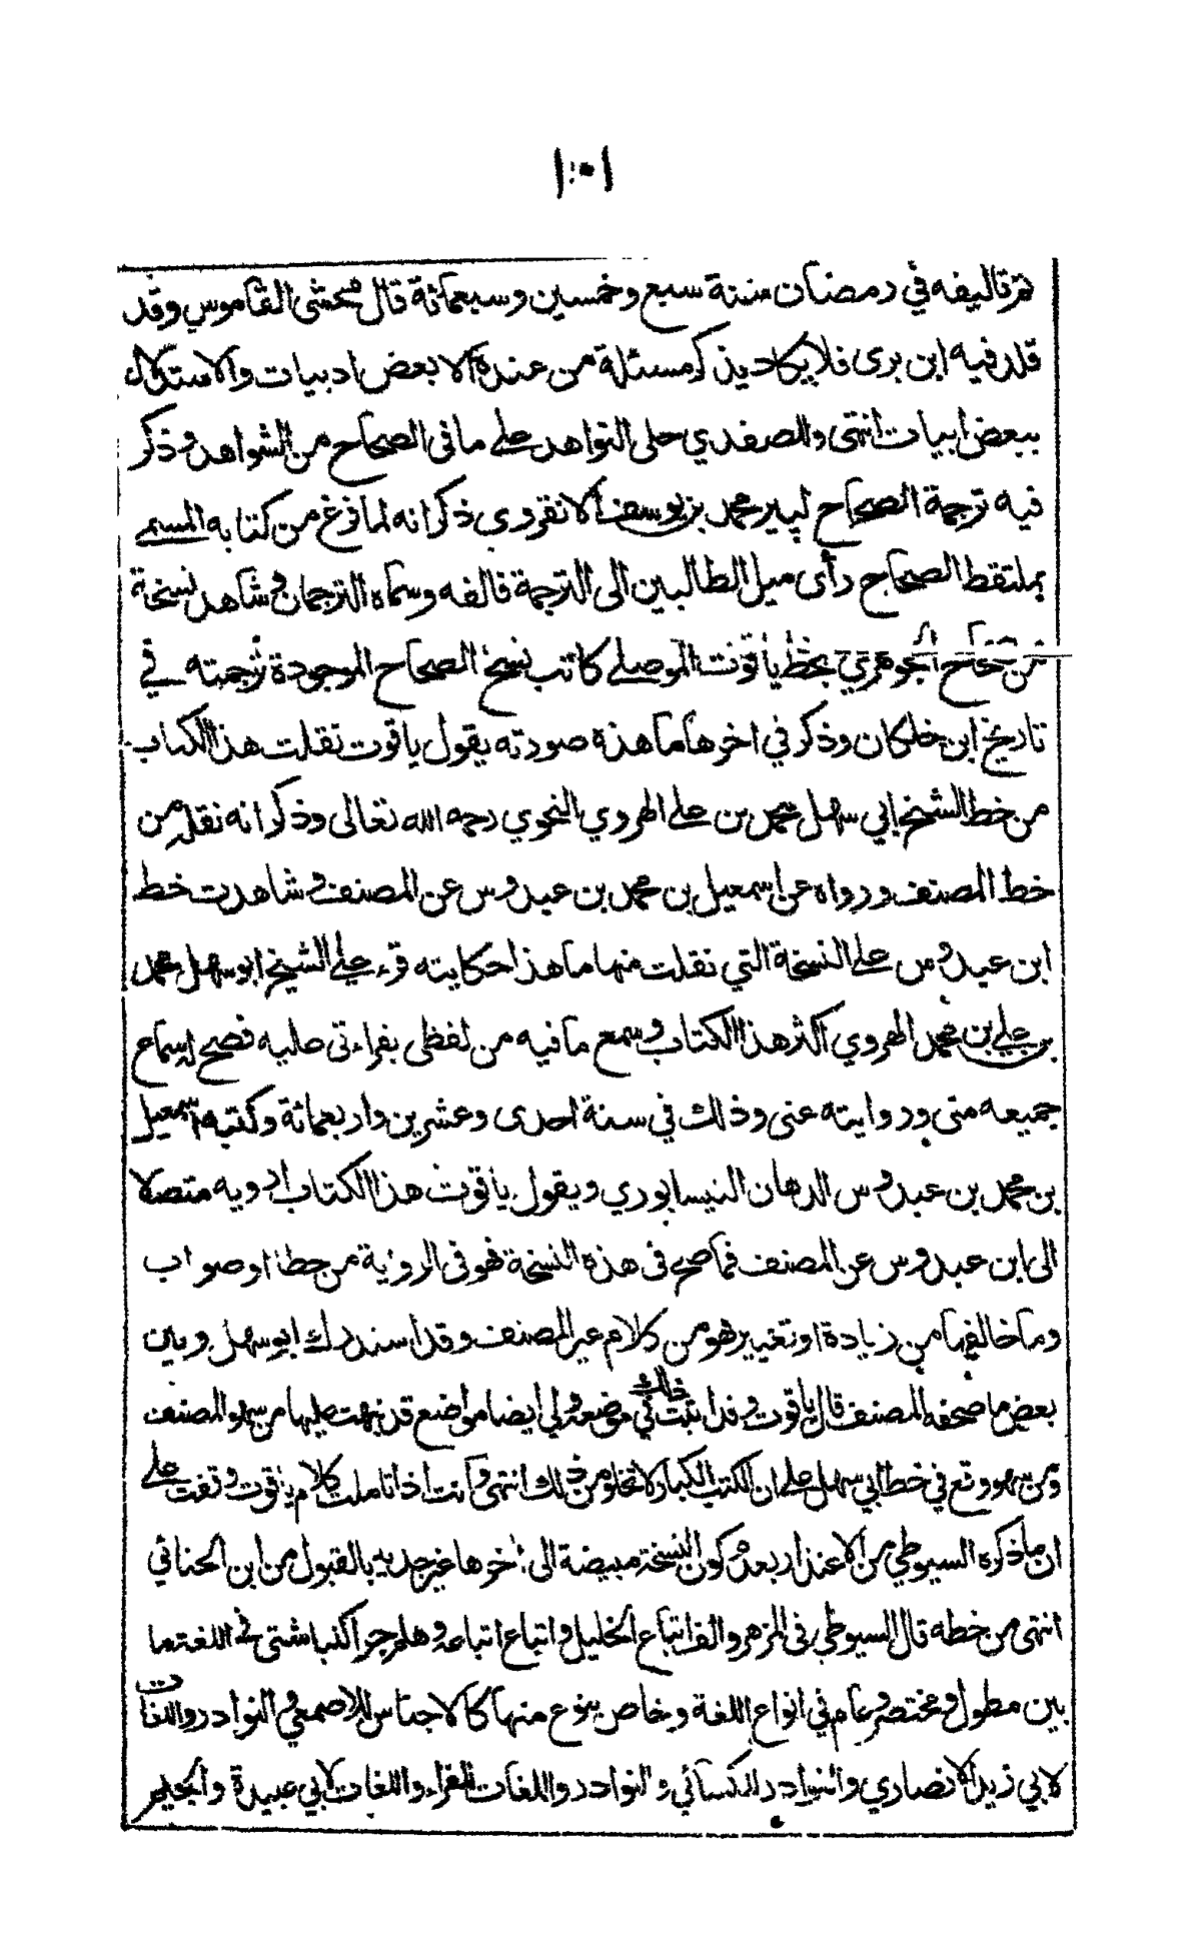 ١٠١
تم تاليفه في رمضان سنة سبع وخمسين وسبعمائة قال محشى القاموس وقد
قلد فيه ابن برى فلا يكاد يذكر مسئلة من عنده الا بعض ادبيات والاستدلال
ببعض ابيات انتهى وللصفدي حلى النواهد على ما فى الصحاح من الشواهد وذكر
فيه ترجمة الصحاح لپير محمد بن يوسف الانقروى ذكر انه لما فرغ من كتابه المسمى
بملتقط الصحاح رأى ميل الطالبين الى الترجمة فالفه وسماه الترجمان وشاهد نسخة
من صحاح الجوهري بخط ياقوت الموصلي كاتب نسخ الصحاح الموجودة ترجمته في
تاريخ ابن خلكان وذكر في اخرها ما هذه صورته يقول ياقوت نقلت هذا الكتاب
من خط الشيخ ابي سهل محمد بن على الهروي النحوي رحمه الله تعالى وذكر انه نقله من
خط المصنف ورواه عن اسمعيل بن محمد بن عبدوس عن المصنف وشاهدت خط
ابن عبدوس على النسخة التي نقلت منها ما هذا حكايته قرء على الشيخ ابو سهل محمد
بن علي بن محمد الهروي اكثر هذا الكتاب وسمع ما فيه من لفظى بقراءتى عليه فصح له سماع
جميعه منى وروايته عنى وذلك في سنة احدى وعشرين واربعمائة وكتبه اسمعيل
بن محمد بن عبدوس الدهان النيسابوري ويقول ياقوت هذا الكتاب ارويه متصلا
الى ابن عبدوس عن المصنف فما صح فى هذه النسخة فهو فى الرواية من خطا او صواب
وما خالفها من زيادة او تغيير هو من كلام غير المصنف وقد استدرك ابو سهل وبين
بعض ما صحفه المصنف قال ياقوت وقد اثبت ذلك في موضعه ولي ايضا مواضع قد نبهت عليها من سهو المصنف
ومن سهو وقع في خط ابي سهل على ان الكتب الكبار لا تخلو من ذلك انتهى وانت اذا تاملت كلام ياقوت وقفت على
ان ما ذكره السيوطي من الاعتذار بعدم كون النسخة مبيضة الى اخرها غير جدير بالقبول من ابن الحنائي
انتهى من خطه قال السيوطي فى المزهر والف اتباع الخليل واتباع اتباعه وهلم جرا كتبا شتى في اللغة ما
بين مطول ومختصر وعام في انواع اللغة وخاص بنوع منها كالاجناس للاصمعي والنوادر واللغات
لابي زيد الانصاري والنوادر للكسائي والنوادر واللغات للفراء واللغات لابي عبيدة والجيم